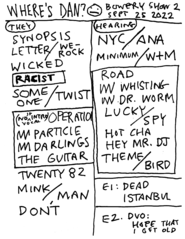 WHERE'S DAN?
BOWERY SHOW 2
SEPT 25 2022
THEY
SYNOPSIS
LETTER/WE-ROCK
WICKED
RACIST
SOME ONE/TWIST
NO INTRO
OPERATION
PARTICLE
DARLINGS
THE GUITAR
TWENTY 82
MINK/MAN
DON'T
HEARING
NYC/ANA
MINIMUM/W+M
ROAD
W/ WHISTING
W/ DR. WORM
LUCKY/SPY
HOT CHA
HEY MR. DJ
THEME/BIRD
E1: DEAD
ISTANBUL
E2. DUO:
HOPE THAT
I GET OLD